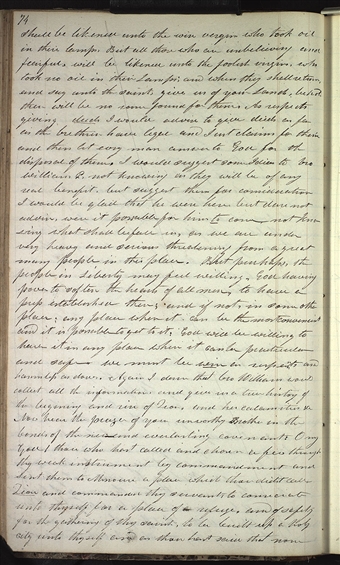 74
shall be likened unto the wise virgins who took oil
in their lamps. But all those who are unbelieving and
fearful, will be likened unto the foolish virgins, who
took no oil in their lamps; and when they shall return
and say unto the saints, give us of your lands, behold
there will be no room found for them. As respects
giving deeds I would advise to give deeds as far
as the brethren have legal and just claims for them
and then let every man answer to God for the
disposal of them. I would suggest some Ideas to bro
William P. not knowing as they will be of any
real benefit, but suggest them for consideration
I would be glad that he were here but dare not
advise, were it possible for him to come not know-
ing what shall befall us, as we are under
very heavy and serious threatening from a great
many people in this place. But perhaps, the
people in Liberty may feel willing, God having
power to soften the hearts of all men, to have a
press established there; and if not, in some other
place; any place where it can be the most convenient
and it is possible to get to it; God will be willing to
have it in any place where it can be
and safe we must be wise as serpents and
harmless as doves. Again I desire that bro William would
collect all the information and give us a true history of
the beginning and rise of Zion, and her calamities &c
Now hear the prayer of your unworthy Brother in the
bonds of the new and everlasting covenant: O my
God! thou who hast called and chosen a few through
thy weak instrument by commandment and
sent them to Missouri a place which thou didst call
Zion and commanded thy servants to consecrate
unto thyself for a place of refuge and of safety
for the gathering of thy saints, to be built up a holy
city unto thyself and as thou hast said that none